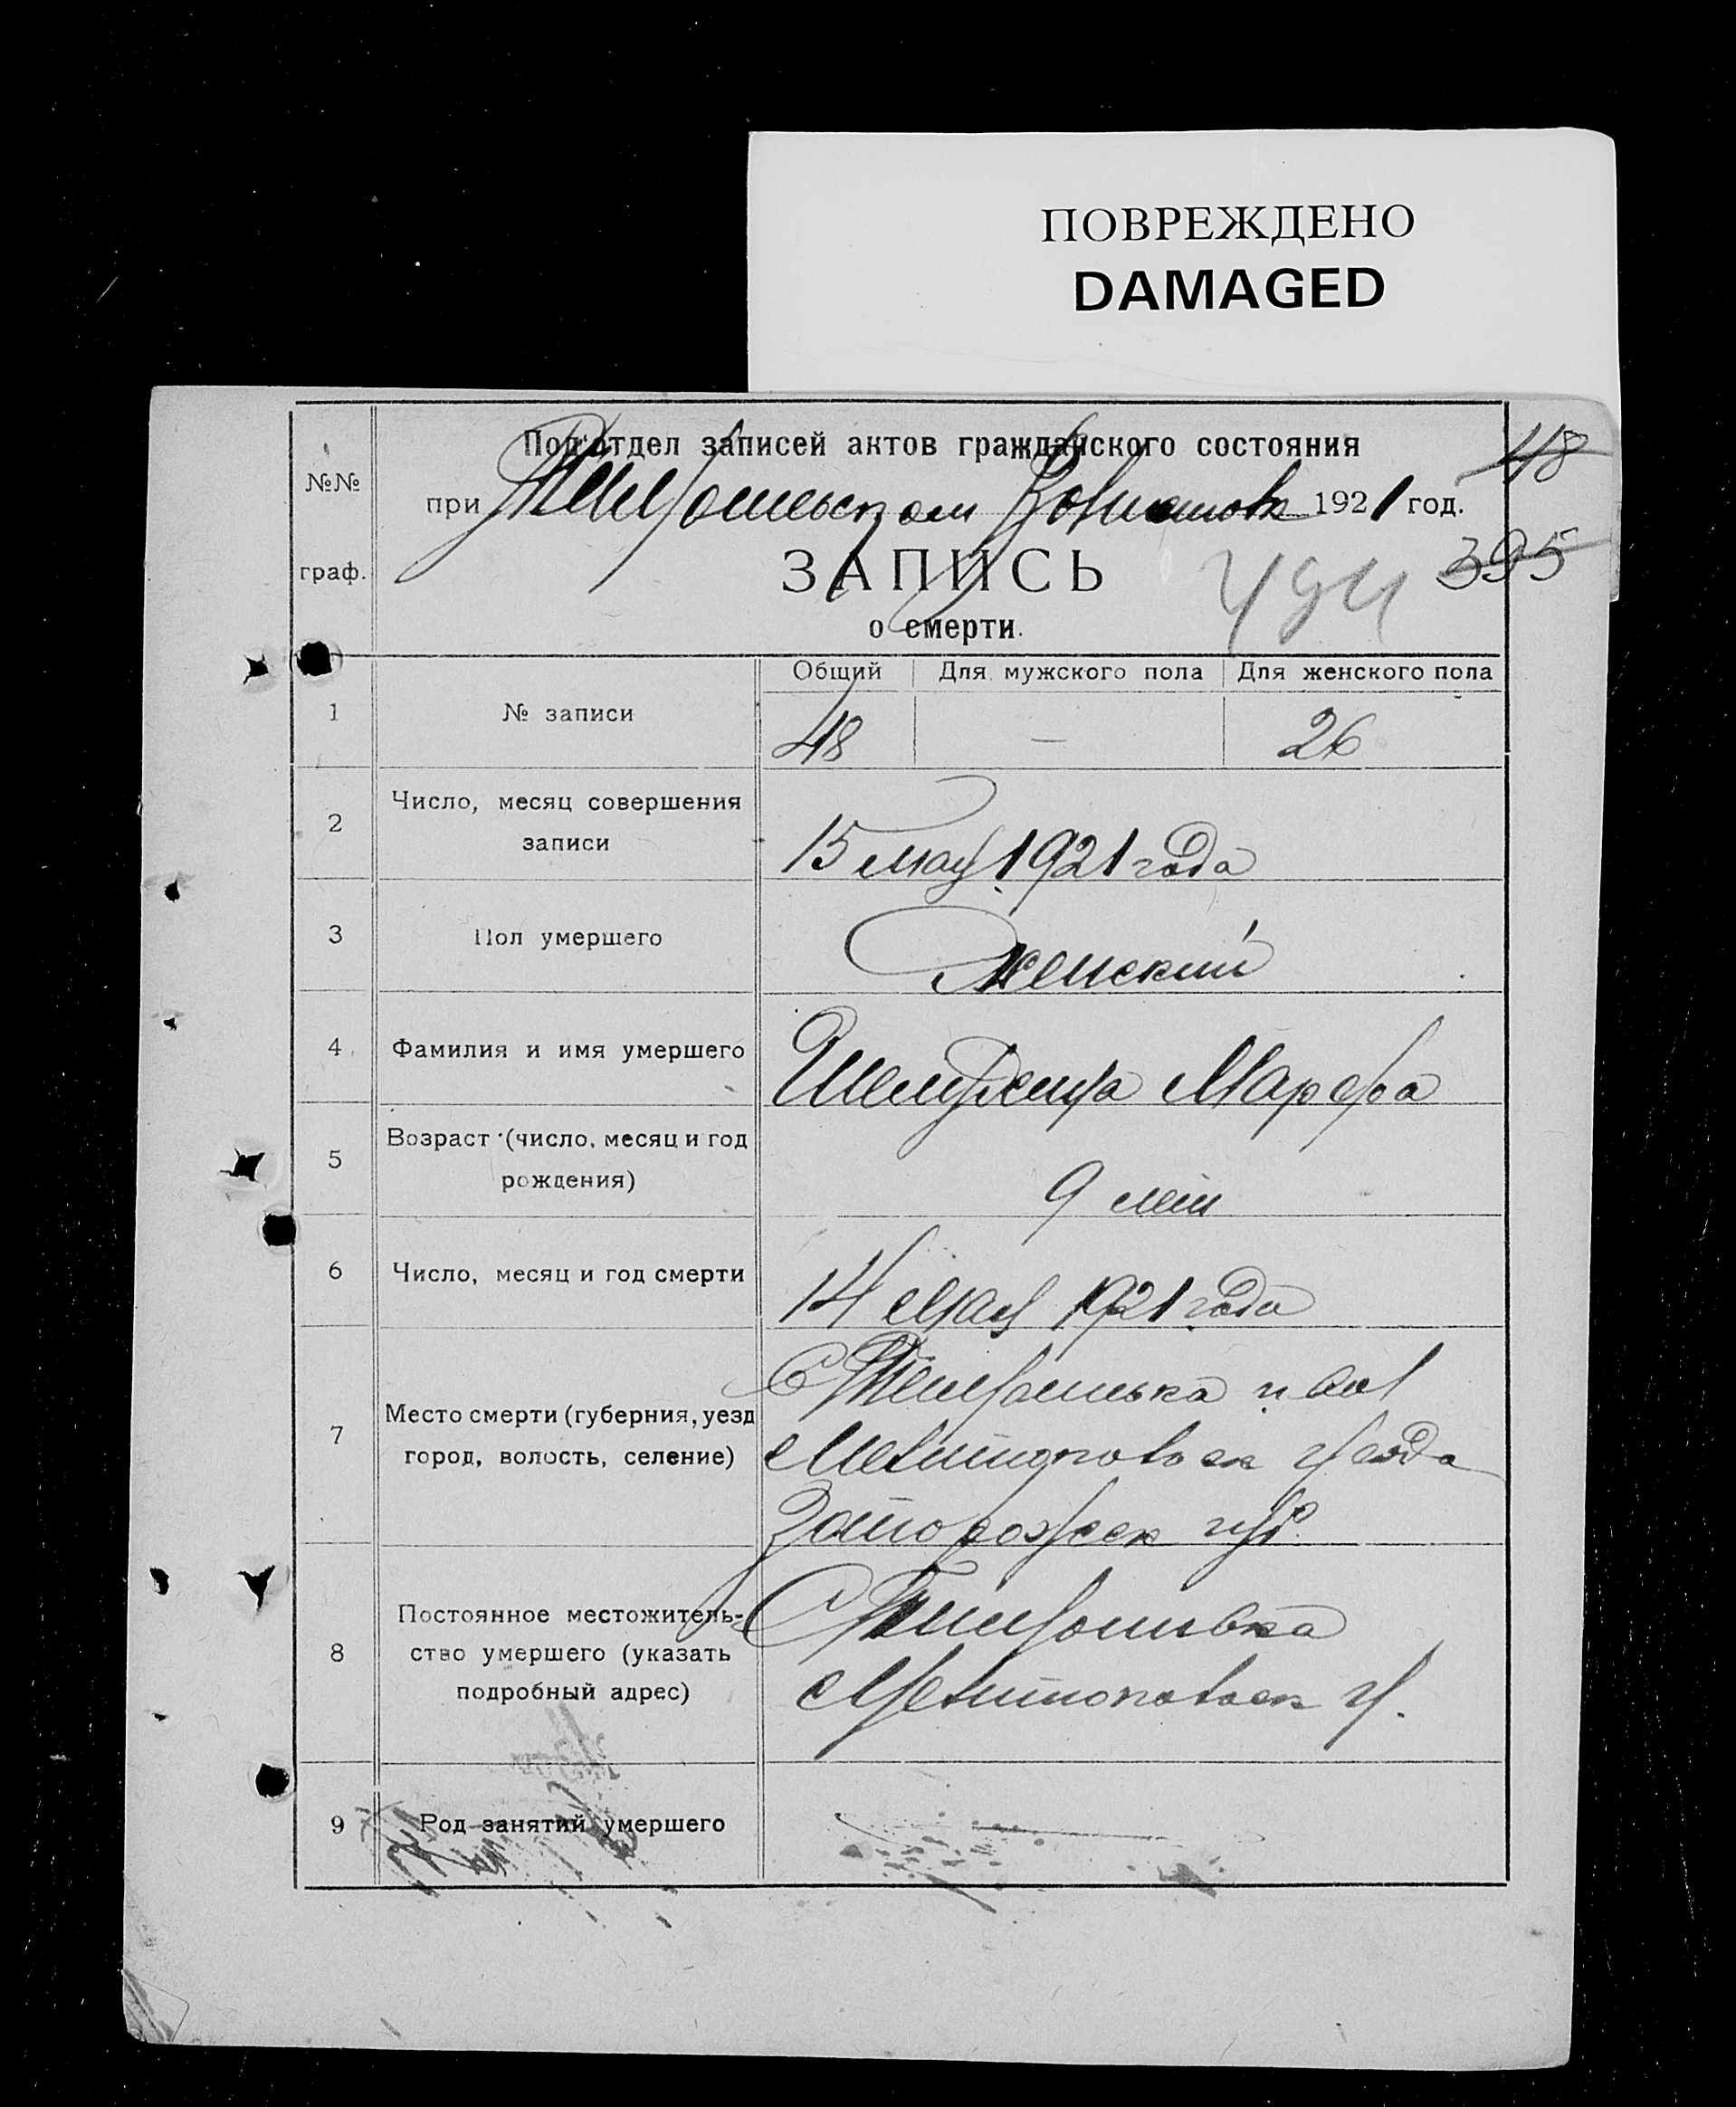 ПОВРЕЖДЕНО
DAMAGED
Под'отдел записей актов гражданского состояния
48
№№
при Волисполк 1921 год.
395
граф.
ЗАПИСЬ
494
о смерти.
Общий Для мужского пола Для женского пола
1 № записи 48 — 26
2 Число, месяц совершения
записи
15 мая 1921 года
3 Пол умершего Женский
4 Фамилия и имя умершего Марфа
5 Возраст (число, месяц и год
рождения)
9 лет
6 Число, месяц и год смерти 14 мая 1921 года
7 Место смерти (губерния, уезд
город, волость, селение)
С Тимошовка и вол
Мелитопольск уезда
Запорожск губ.
8 Постоянное местожитель-
ство умершего (указать
подробный адрес)
С Тимошовка
Мелитопольск у.
9 Род занятий умершего